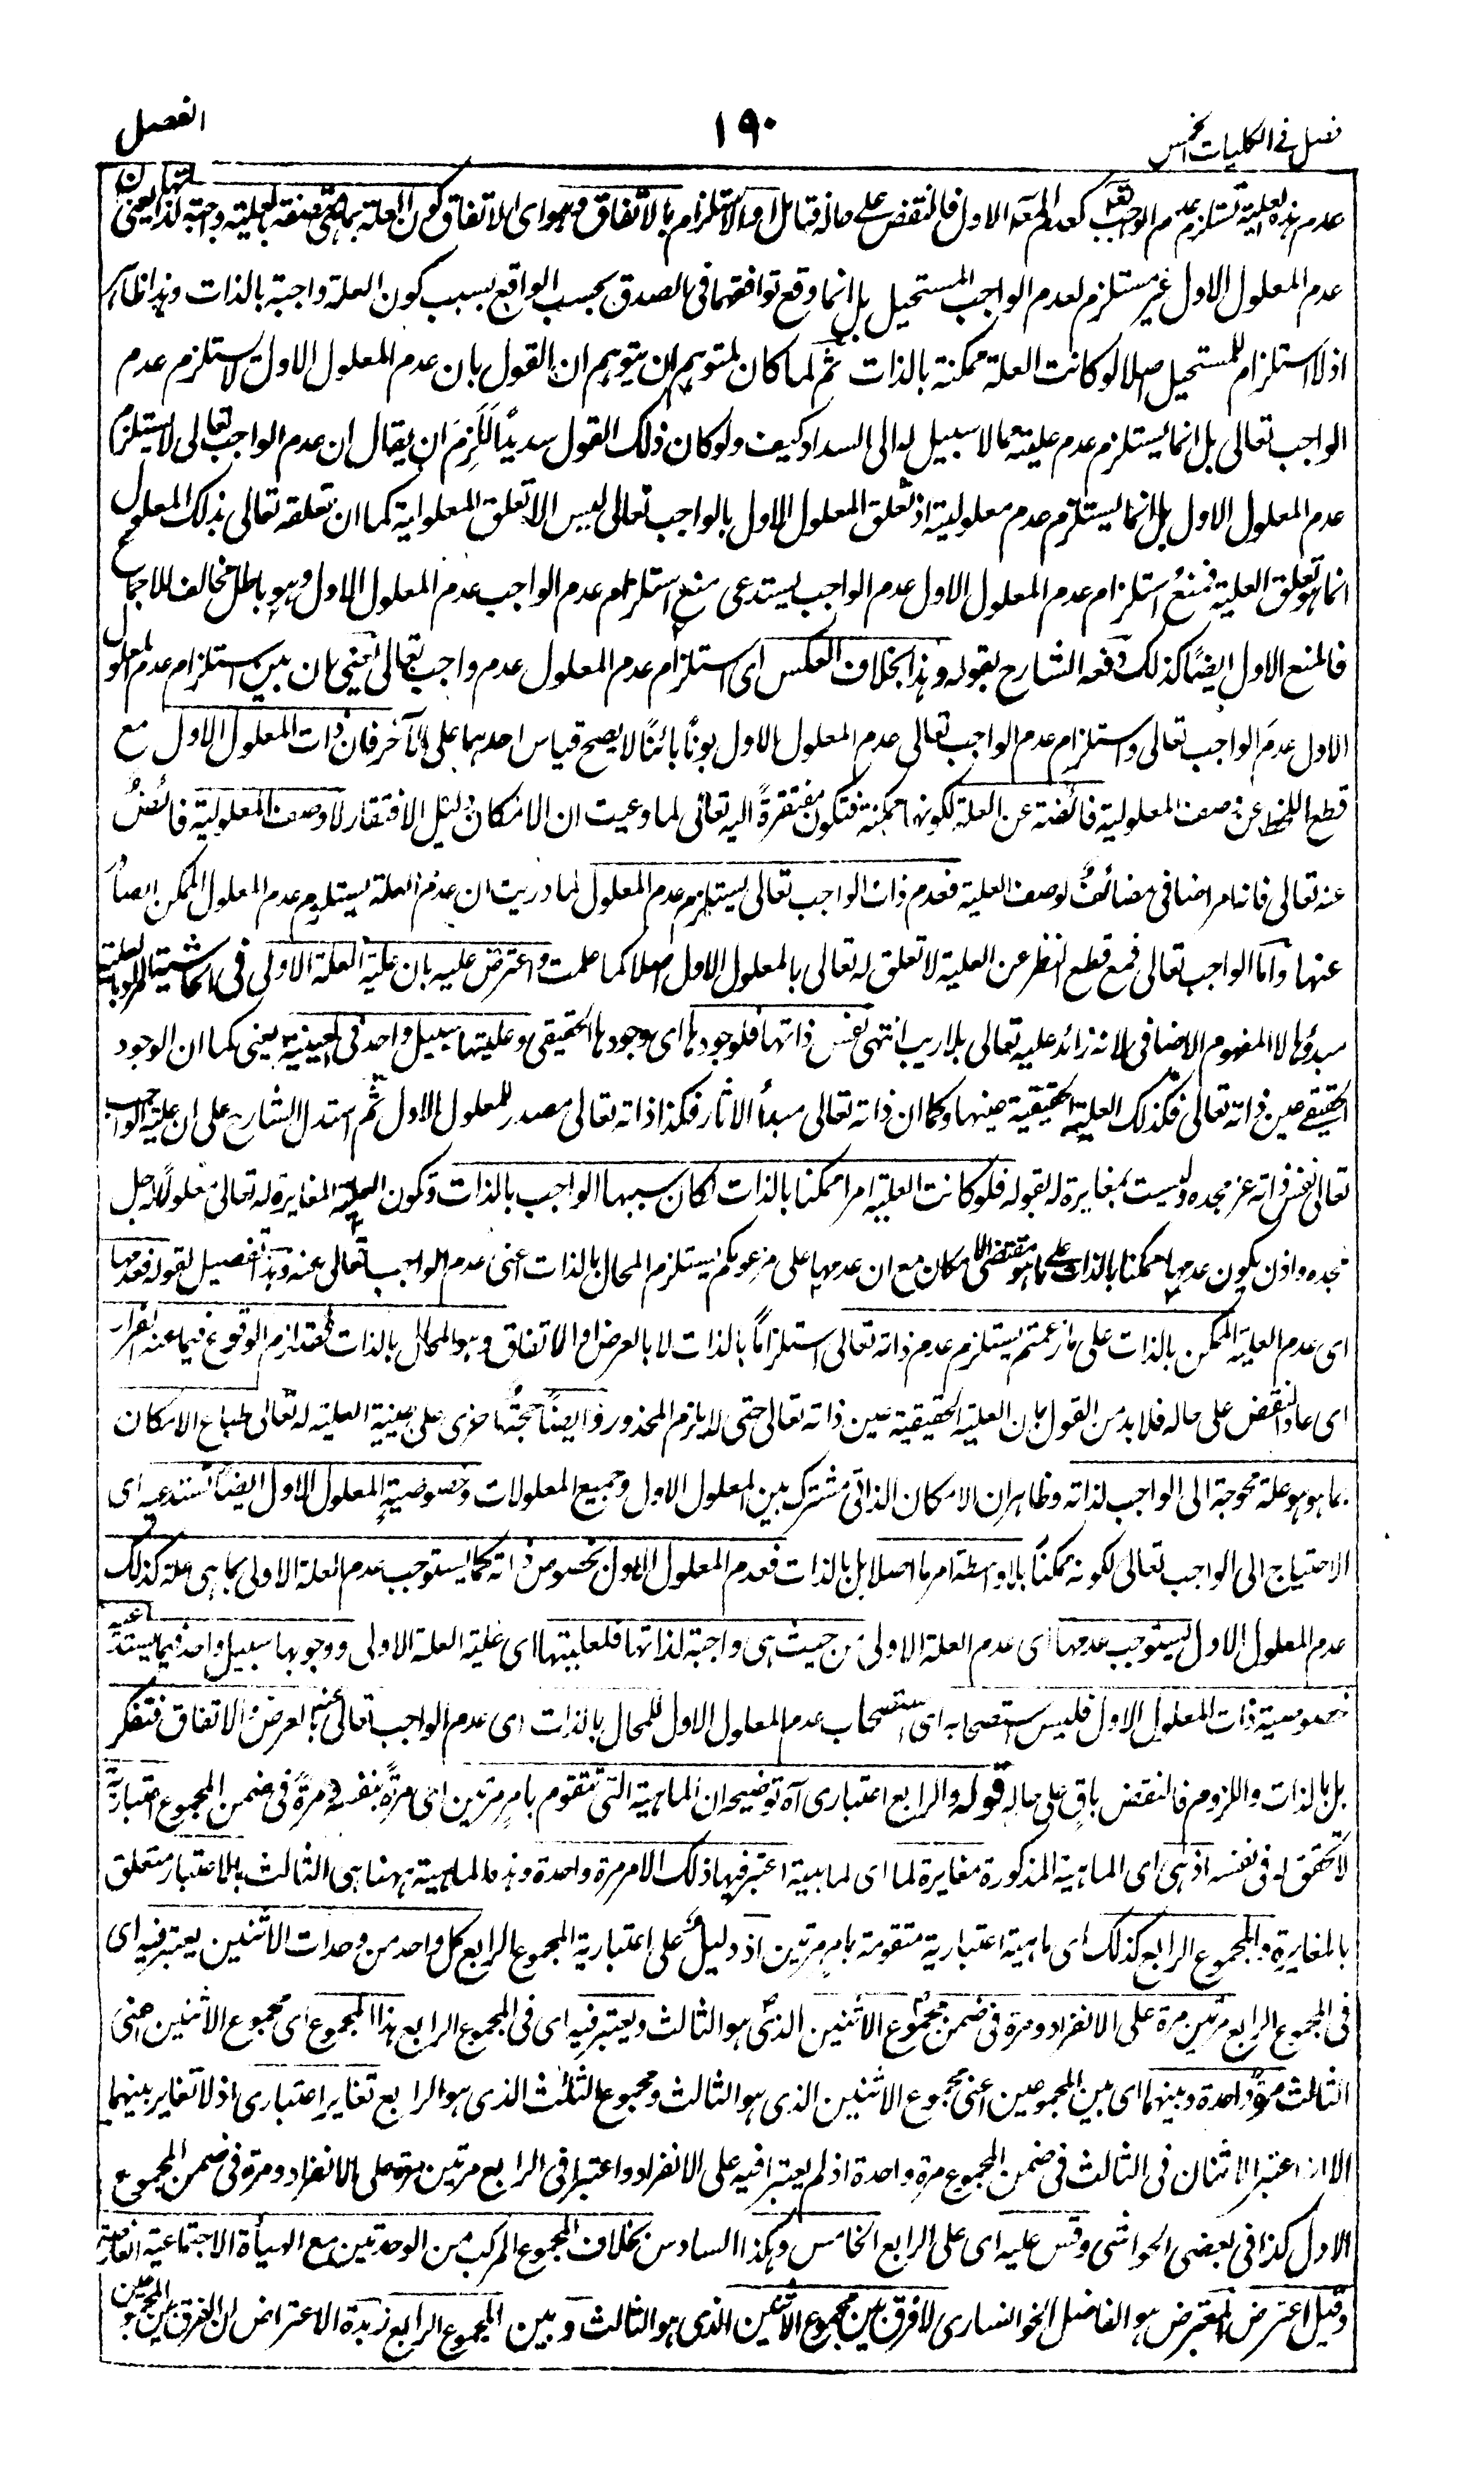 فصل فى الكليات الخمس
١٩٠
الفصل
عدم هذه العلية تستلزم عدم الواجب تعالى كعدم المع الاول فالنقض على حاله فتامل او الاستلزام بالاتفاق وهو اى الاتفاق كون العلة بما هى متصفة بالعلية واجبة لذاتها يعنى ان
عدم المعلول الاول غير مستلزم لعدم الواجب المستحيل بل انما وقع توافقهما فى الصدق بحسب الواقع بسبب كون العلة واجبة بالذات وهذا ظاهر
اذ لا استلزام للمستحيل اصلا لو كانت العلة ممكنة بالذات ثم لما كان لمتوهم ان يتوهم ان القول بان عدم المعلول الاول لا يستلزم عدم
الواجب تعالى بل انما يستلزم عدم عليته مما لا سبيل له الى السداد كيف ولو كان ذلك القول سديدًا لَلَزِمَ ان يقال ان عدم الواجب تعالى لا يستلزم
عدم المعلول الاول بل انما يستلزم عدم معلوليته اذ تعلق المعلول الاول بالواجب تعالى ليس الا تعلق المعلولية كما ان تعلقه تعالى بذلك المعلول
انما هو تعلق العلية فمنع استلزام عدم المعلول الاول عدم الواجب يستدعى منع استلزام عدم الواجب عدم المعلول الاول وهو باطل مخالف للاجماع
فالمنع الاول ايضًا كذلك دفعه الشارح بقوله وهذا بخلاف العكس اى استلزام عدم المعلول عدم واجب تعالى اعنى ان بين استلزام عدم المعلول
الاول عدمَ الواجب تعالى واستلزام عدم الواجب تعالى عدم المعلول الاول بونًا بائنًا لا يصح قياس احدهما على الآخر فان ذات المعلول الاول مع
قطع اللحظ عن وصف المعلولية فائضة عن العلة لكونها ممكنة فتكون مفتقرةً اليه تعالى لما وعيت ان الامكان دليل الافتقار لا وصف المعلولية فائضٌ
عنه تعالى فانه امر اضافى مضائفٌ لوصف العلية فعدم ذات الواجب تعالى يستلزم عدم المعلول لما دريت ان عدم العلة يستلزم عدم المعلول الممكن الصادر
عنها واما الواجب تعالى فمع قطع النظر عن العلية لا تعلق له تعالى بالمعلول الاول اصلا كما علمت واعترض عليه بان علية العلة الاولى فى الحاشية المراد بالعلية
مبدؤها لا المفهوم الاضافى لانه زائد عليه تعالى بلا ريب انتهى نفس ذاتها فلوجودها اى وجودها الحقيقى وعليتها سبيل واحد فى العينية يعنى كما ان الوجود
الحقيقى عين ذاته تعالى فكذلك العلية الحقيقية عينها وكما ان ذاته تعالى مبدأ الاثار فكذا ذاته تعالى مصدر للمعلول الاول ثم استدل الشارح على ان علية الواجب
تعالى نفس ذاته عز مجده وليست بمغايرة له بقوله فلو كانت العلية امرا ممكنا بالذات لكان سببها الواجب بالذات وتكون العلية المغايرة له تعالى معلولًا له جل
مجده واذن يكون عدمها ممكنا بالذات على ما هو مقتضى الامكان مع ان عدمها على مزعومكم يستلزم المحال بالذات اعنى عدم الواجب تعالى عنه وهذا تفصيل لقوله فعدمها
اى عدم العلية الممكن بالذات على ما زعمتم يستلزم عدم ذاته تعالى استلزامًا بالذات لا بالعرض والاتفاق وهو المحال بالذات فقد لزم الوقوع فيما عنه الفرار
اى عاد النقض على حاله فلا بد من القول بان العلية الحقيقية عين ذاته تعالى حتى لا يلزم المحذور وايضًا حجةٌ اخرى على عينية العلية له تعالى طباع الامكان
بما هو هو علة محوجة الى الواجب لذاته وظاهر ان الامكان الذاتى مشترك بين المعلول الاول وجميع المعلولات وخصوصية المعلول الاول ايضًا تستدعيه اى
الاحتياج الى الواجب تعالى لكونه ممكنًا بلا واسطة امر ما اصلا بل بالذات فعدم المعلول الاول بخصوص ذاته كما يستوجب عدم العلة الاولى بما هى علة كذلك
عدم المعلول الاول يستوجب عدمها اى عدم العلة الاولى من حيث هى واجبة لذاتها فلعليتها اى علية العلة الاولى ووجوبها سبيل واحد فيما يستدعيه
خصوصية ذات المعلول الاول فليس استصحابه اى استصحاب عدم المعلول الاول للمحال بالذات اى عدم الواجب تعالى عنه بالعرض والاتفاق فتفكر
بل بالذات واللزوم فالنقض باقٍ على حاله قوله والرابع اعتبارى آه توضيحه ان الماهية التى تتقوم بامرٍ مرتين اى مرةً بنفسه ومرةً فى ضمن المجموع اعتباريةٌ
لا تحقق له فى نفسه اذ هى اى الماهية المذكورة مغايرة لما اى لماهية اعتبر فيها ذلك الامر مرة واحدة وهذه الماهية ههنا هى الثالث بالاعتبار متعلق
بالمغايرة والمجموع الرابع كذلك اى ماهية اعتبارية متقومة بامر مرتين اذ دليل على اعتبارية المجموع الرابع كل واحد من وحدات الاثنين يعتبر فيه اى
فى المجموع الرابع مرتين مرة على الانفراد ومرة فى ضمن مجموع الاثنين الذى هو الثالث ويعتبر فيه اى فى المجموع الرابع هذا المجموع اى مجموع الاثنين اعنى
الثالث مرة واحدة وبينهما اى بين المجموعين اعنى مجموع الاثنين الذى هو الثالث ومجموع الثلث الذى هو الرابع تغاير اعتبارى اذ لا تغاير بينهما
الا ان اعتبر الاثنان فى الثالث فى ضمن المجموع مرة واحدة اذ لم يعتبرا فيه على الانفراد واعتبرا فى الرابع مرتين مرة على الانفراد ومرة فى ضمن المجموع
الاول كذا فى بعض الحواشى وقس عليه اى على الرابع الخامس وهكذا السادس بخلاف المجموع المركب من الوحدتين مع الهيأة الاجتماعية العارضة
وقيل اعترض المعترض هو الفاضل الخوانسارى لا فرق بين مجموع الاثنين الذى هو الثالث وبين المجموع الرابع زبدة الاعتراض ان الفرق بين المجموعين